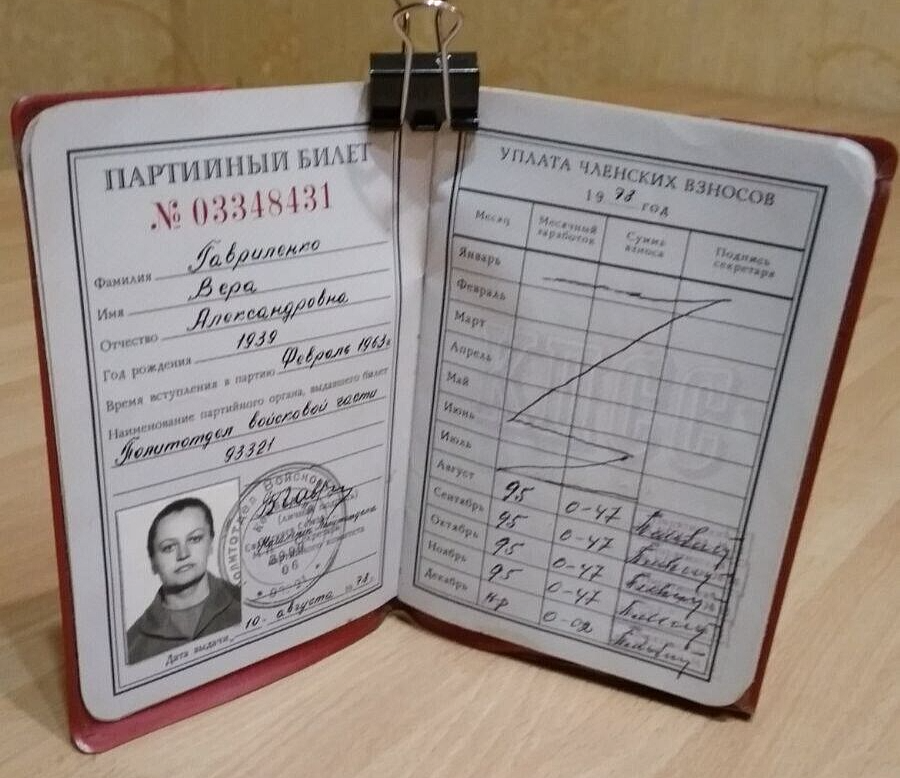 ПАРТИЙНЫЙ БИЛЕТ
№ 03348431
Фамилия Гавриленко
Имя Вера
Отчество Александровна
Год рождения 1939
Время вступления в партию Февраль 1963г
Наименование партийного органа, выдавшего билет
Политотдел войсковой части
93321
(личная подпись)
Дата выдачи 10 августа 1978 г.
УПЛАТА ЧЛЕНСКИХ ВЗНОСОВ
1978 год
Месяц Месячный заработок Сумма взноса Подпись секретаря
Январь
Февраль
Март
Апрель
Май
Июнь
Июль
Август 95 0-47
Сентябрь 95 0-47
Октябрь 95 0-47
Ноябрь 95 0-47
Декабрь нр 0-02